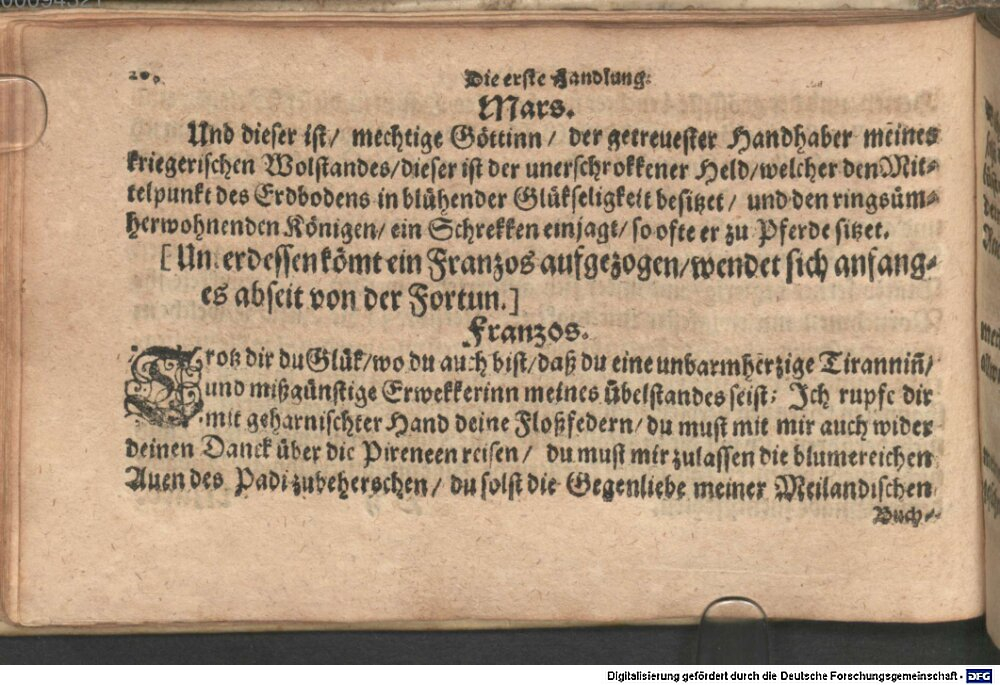 20.
Die erste Handlung.
Mars.
Und dieser ist/ mechtige Göttinn/ der getreuester Handhaber meines
kriegerischen Wolstandes/dieser ist der unerschrokkener Held/welcher den Mit-
telpunkt des Erdbodens in blühender Glükseligkeit besitzet/ und den ringsüm-
herwohnenden Königen/ ein Schrekken einjagt/ so ofte er zu Pferde sitzet.
[Unterdessen kömt ein Franzos aufgezogen/wendet sich anfang-
es abseit von der Fortun.]
Franzos.
Trotz dir du Glük/wo du auch bist/daß du eine unbarmhertzige Tirannin̄/
und mißgünstige Erwekkerinn meines übelstandes seist; Ich rupfe dir
mit geharnischter Hand deine Floßfedern/du must mit mir auch wider
deinen Danck über die Pireneen reisen/ du must mir zulassen die blumereichen
Auen des Padi zubeherschen/ du solst die Gegenliebe meiner Meilandischen
Buch-
Digitalisierung gefördert durch die Deutsche Forschungsgemeinschaft - DFG